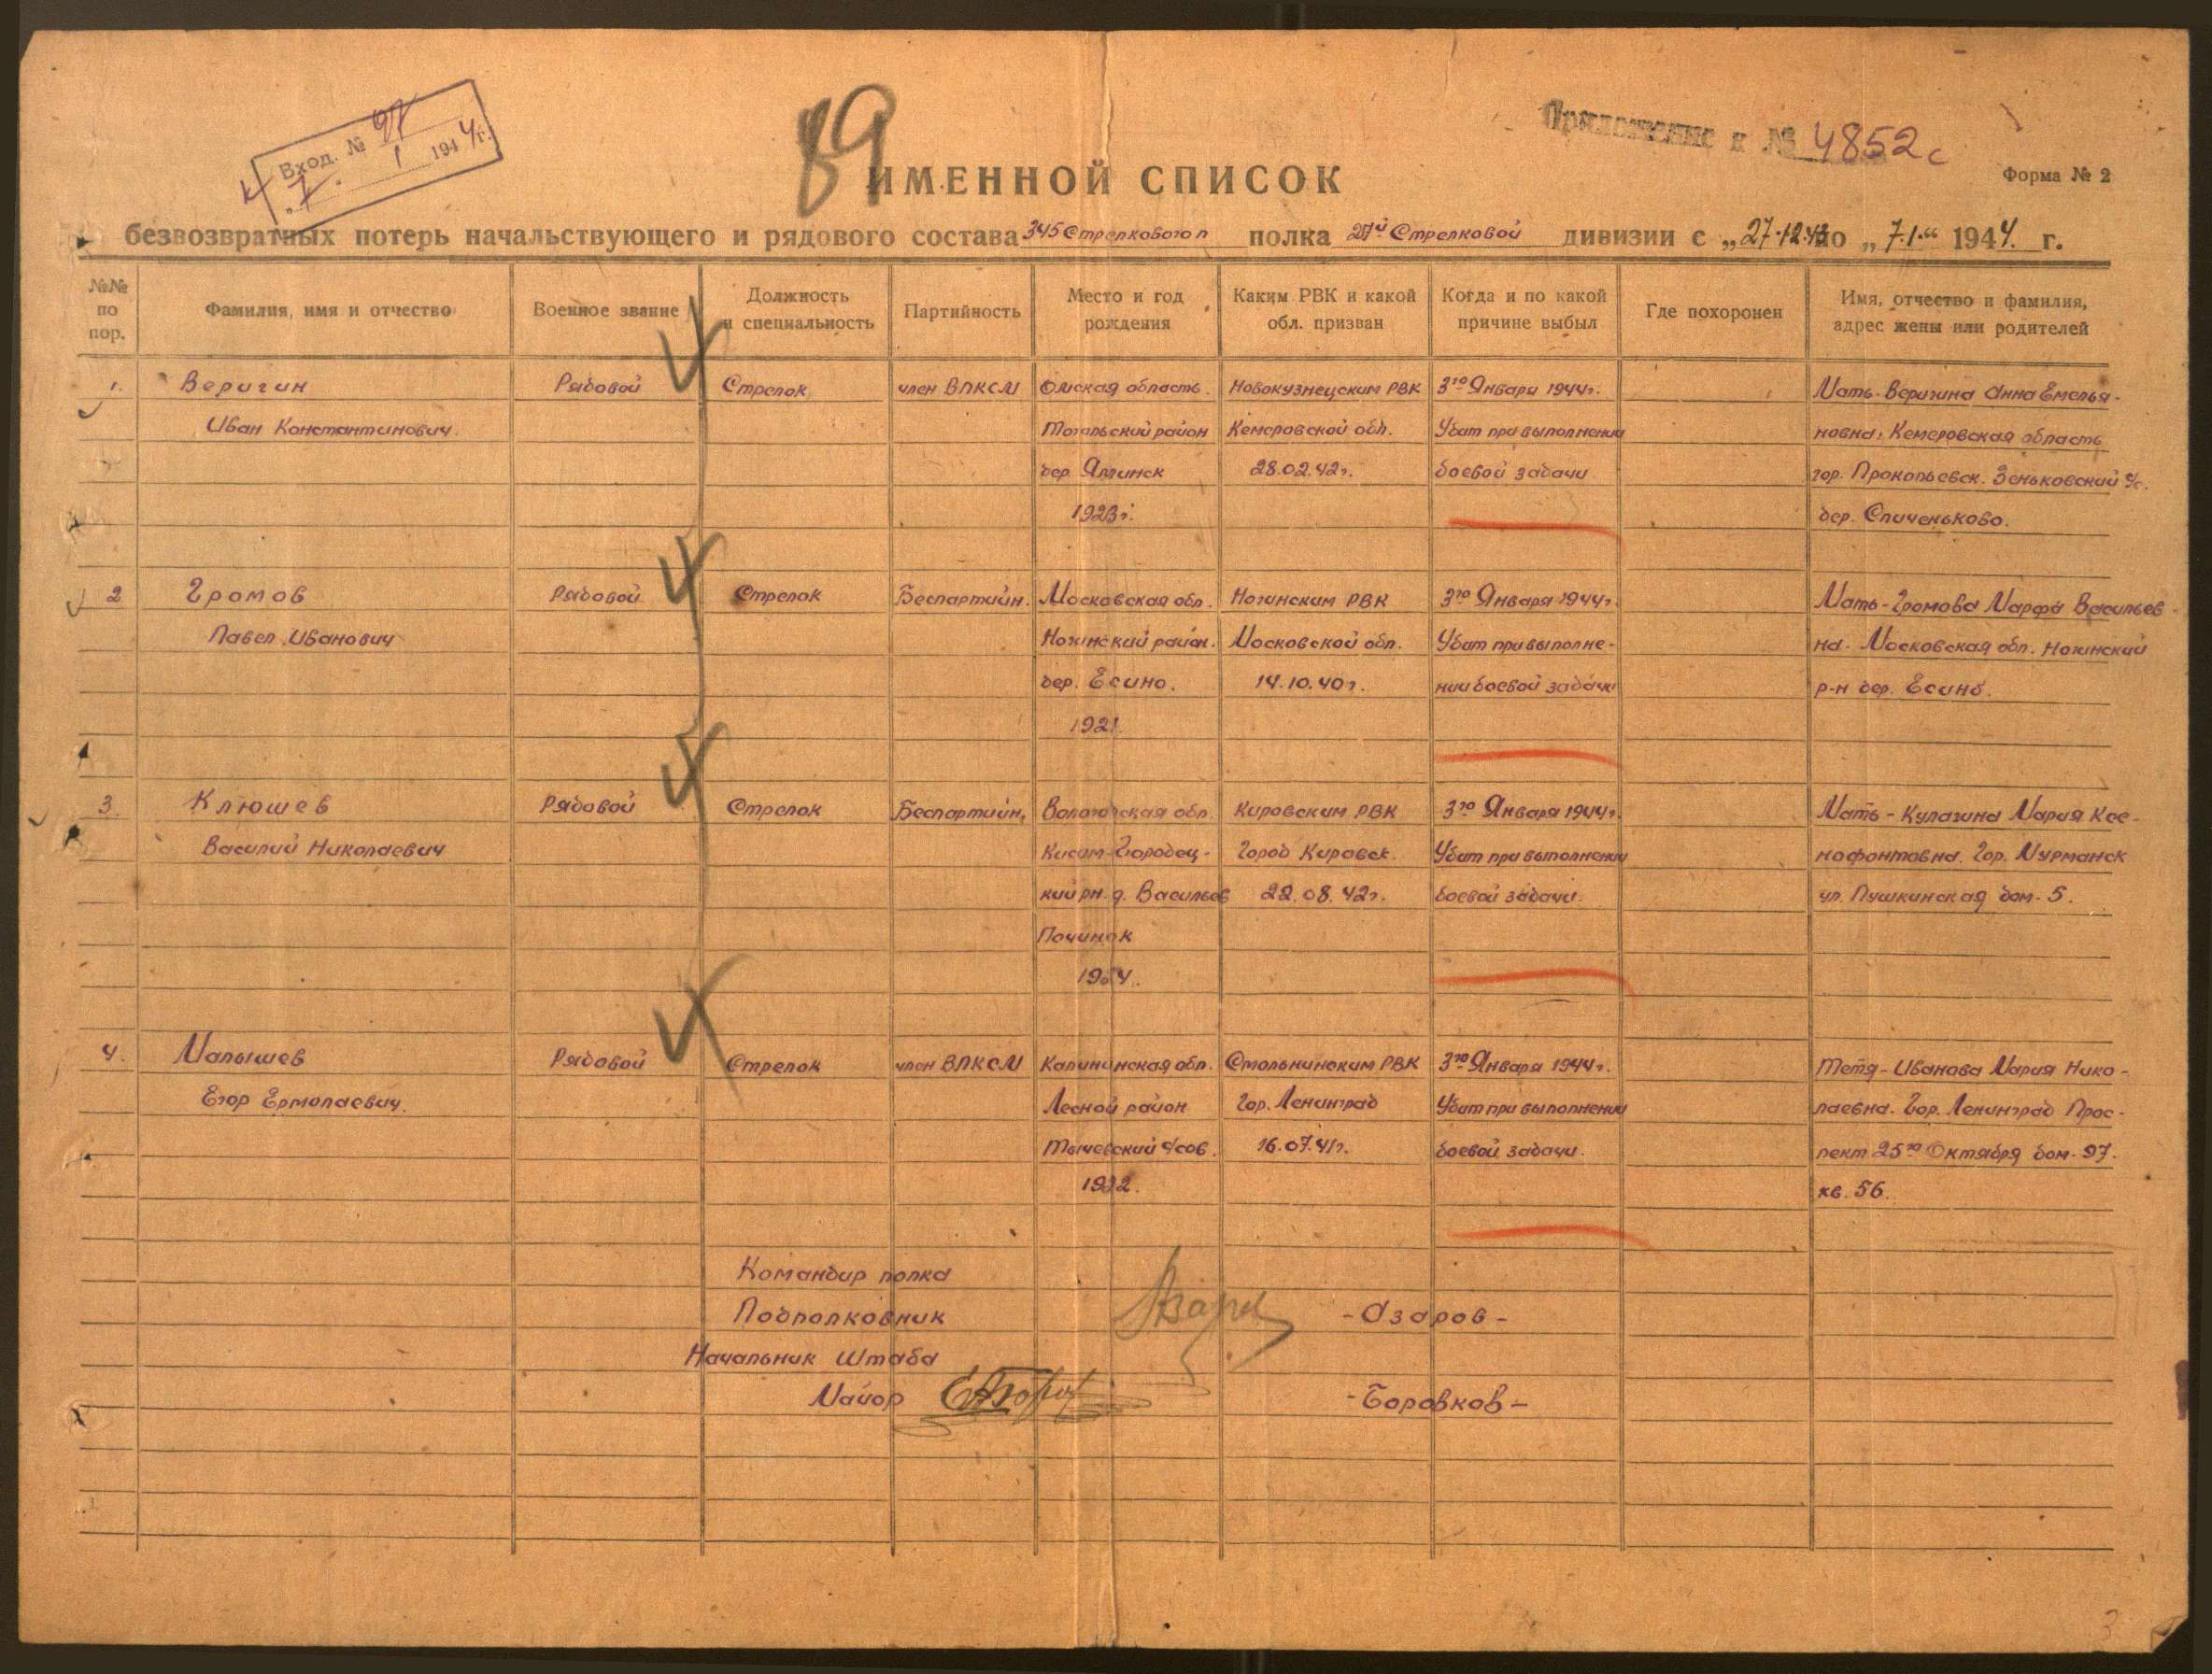 Вход. № 97
7. 1 1944 г.
89
Приложение к № 4852с
Форма № 2
ИМЕННОЙ СПИСОК
безвозвратных потерь начальствующего и рядового состава 345 Стрелкового п полка 27й Стрелковой дивизии с „27.12.43 по „7.1.“ 1944. г.
№№ по пор.
Фамилия, имя и отчество
Военное звание
Должность и специальность
Партийность
Место и год рождения
Каким РВК и какой обл. призван
Когда и по какой причине выбыл
Где похоронен
Имя, отчество и фамилия, адрес жены или родителей
1. Веригин Рядовой Стрелок член ВЛКСМ Омская область. Новокузнецким РВК 3го Января 1944г. Мать-Веригина Анна Емелья-
Иван Константинович. район Кемеровской обл. Убит при выполнении новна, Кемеровская область
дер. 28.02.42г. боевой задачи гор. Прокопьевск. Зеньковский с/с.
1923г. дер. Спиченьково.
2 Громов Рядовой Стрелок Беспартийн. Московская обл. Ногинским РВК 3го Января 1944г. Мать-Громова Марфа Васильев-
Павел Иванович Ногинский район. Московской обл. Убит при выполне- на. Московская обл. Ногинский
дер. Есино. 14.10.40г. нии боевой задачи р-н дер. Есино.
1921.
3. Клюшев Рядовой Стрелок Беспартийн. Вологодская обл. Кировским РВК 3го Января 1944г. Мать-Кулагина Мария Ксе-
Василий Николаевич Кисем-Городец- Город Кировск. Убит при выполнении нофонтовна. Гор. Мурманск
кий рн. д. Васильев 22.08.42г. боевой задачи. ул. Пушкинская дом-5.
Починок
4. Малышев Рядовой Стрелок член ВЛКСМ Калининская обл. Смольнинским РВК 3го Января 1944г. Тетя-Иванова Мария Нико-
Егор Ермолаевич. Лесной район Гор. Ленинград Убит при выполнении лаевна. Гор. Ленинград Прос-
16.07.41г. боевой задачи. пект 25го Октября дом-97.
кв. 56.
Командир полка
Подполковник -Азаров-
Начальник Штаба
Майор -Боровков-
3